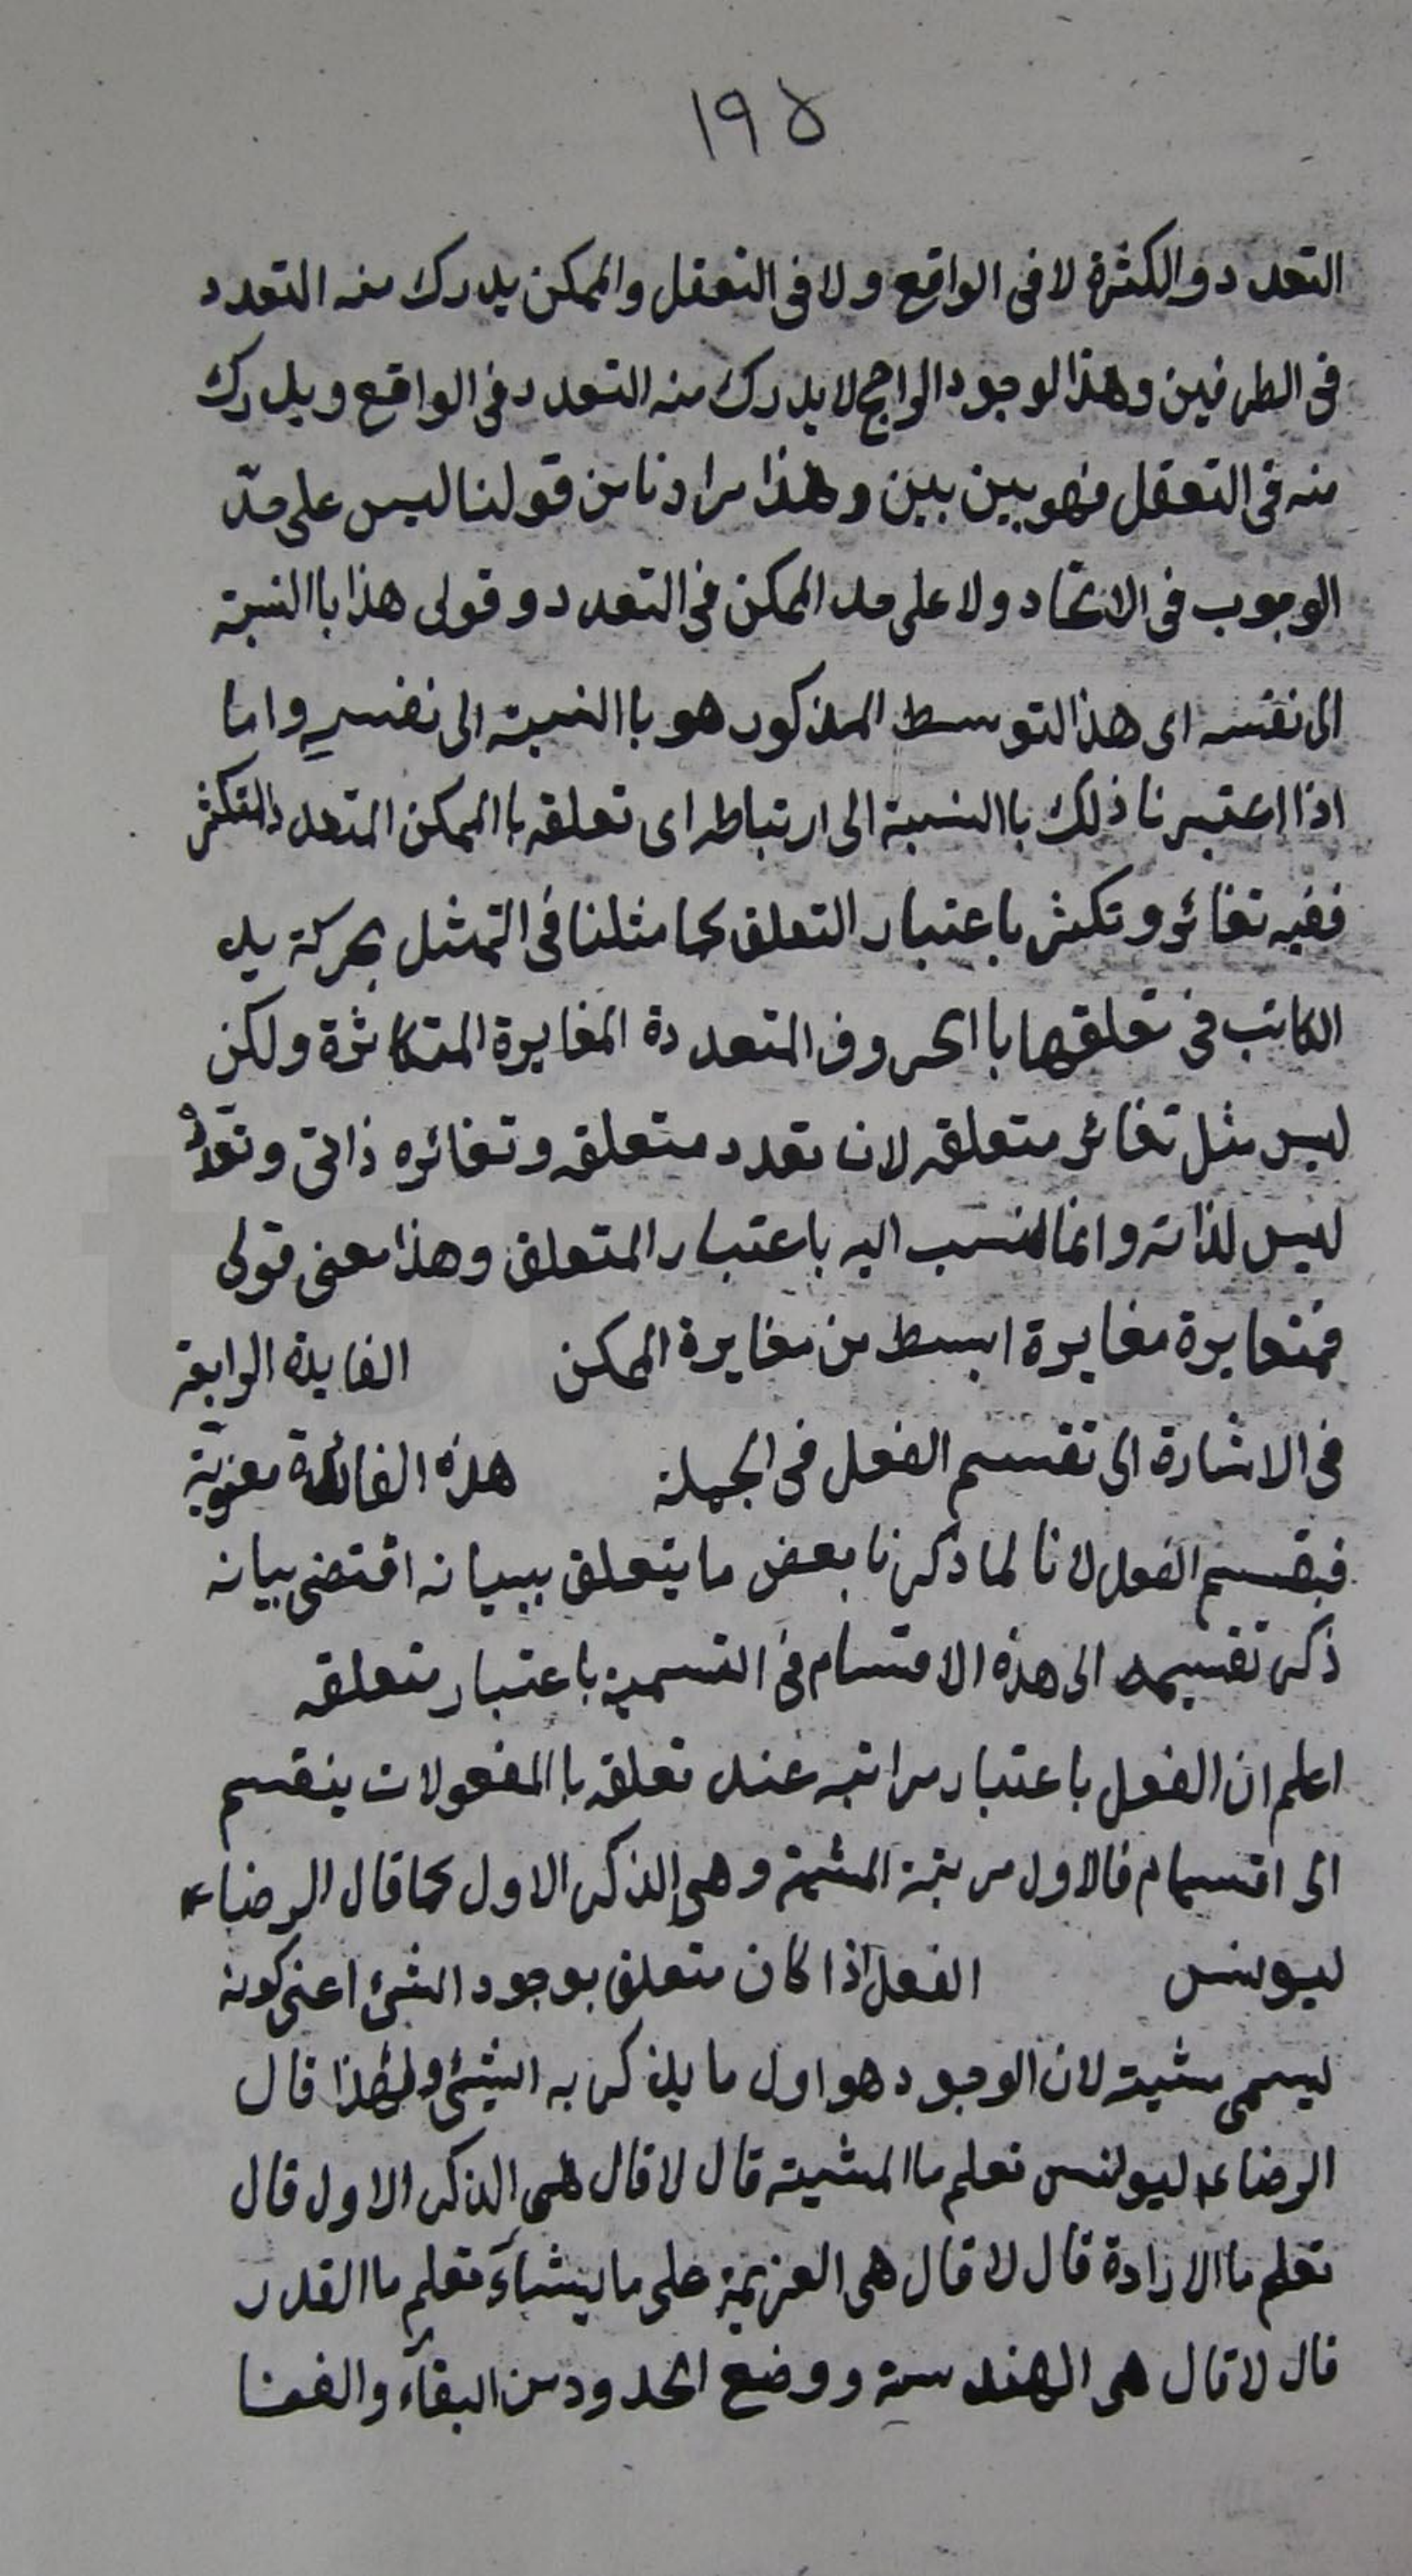 ١٩٥
التعدد والكثرة لا فى الواقع ولا فى التعقل والممكن يدرك منه التعدد
فى الطرفين وهذا لوجود الراجح لا يدرك منه التعدد فى الواقع ويدرك
منه فى التعقل فهو بين بين وهذا مرادنا من قولنا ليس على حدّ
الوجوب فى الاتحاد ولا على حد الممكن فى التعدد وقولى هذا باالنسبة
الى نفسه اى هذالتوسط المذكور هو باالنسبة الى نفسه واما
اذا اعتبرنا ذلك باالنسبة الى ارتباطه اى تعلقه باالممكن المتعدد المتكثر
ففيه تغائر وتكثر باعتبار التعلق كما مثلنا فى التمثل بحركة يد
الكاتب فى تعلقها باالحروف المتعددة المغايرة المتكاثرة ولكن
ليس مثل تغائر متعلقه لان تعدد متعلقه وتغائره ذاتى وتعدّده
ليس لذاته وانما نسب اليه باعتبار المتعلق وهذا معنى قولى
فمتغايرة مغايرة ابسط من مغايرة الممكن الفايدة الرابعة
فى الاشارة الى تقسيم الفعل فى الجملة هذه الفائدة معنويّة
فبقسيم الفعل لانا لما ذكرنا بعض ما يتعلق ببيانه اقتضى بيانه
ذكر تقسيمه الى هذه الاقسام فى التسمية باعتبار متعلقه
اعلم ان الفعل باعتبار مراتبه عند تعلقه باالمفعولات ينقسم
الى اقسام فالاول مرتبة المشية وهى الذكر الاول كما قال الرضاء
ليونس الفعل اذا كان متعلق بوجود الشئ اعنى كونه
ليسمى مشيته لان الوجود هو اول ما يذكر به الشئ ولهذا قال
الرضاء ليونس تعلم ماالمشيته قال لا قال هى الذكر الاول قال
تعلم ماالارادة قال لا قال هى العزيمة على ما يشآء تعلم ماالقدر
قال لا قال هى الهندسة ووضع الحدود من البقآء والفنا